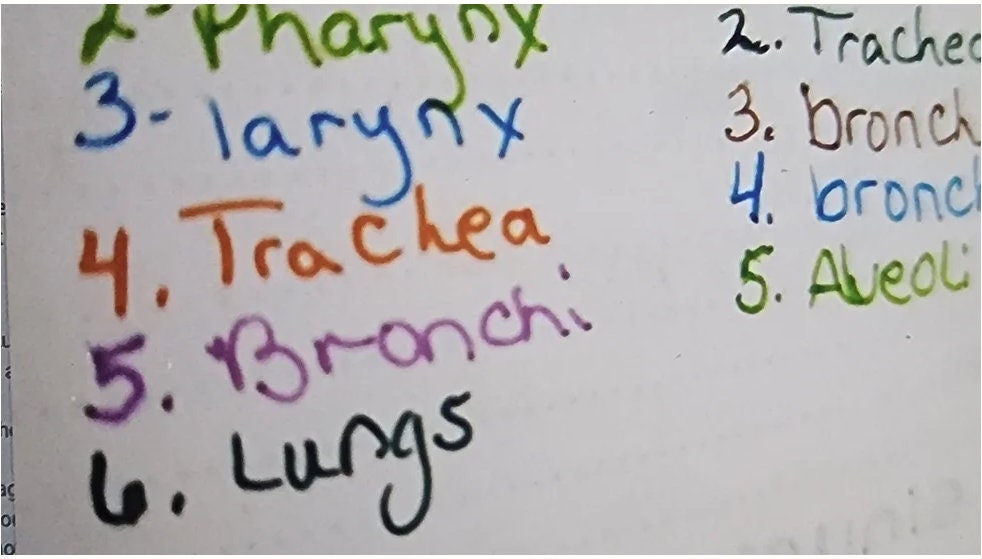 2- Pharynx
3- larynx
4. Trachea
5. Bronchi
6. Lungs
2. Trachea
3. bronch
4. bronch
5. Alveoli